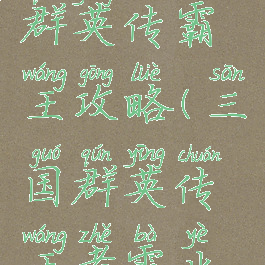 群英传霸
wáng gōng lüè sān
王攻略(三
guó qún yīng chuán
国群英传
wáng zhě bà yè